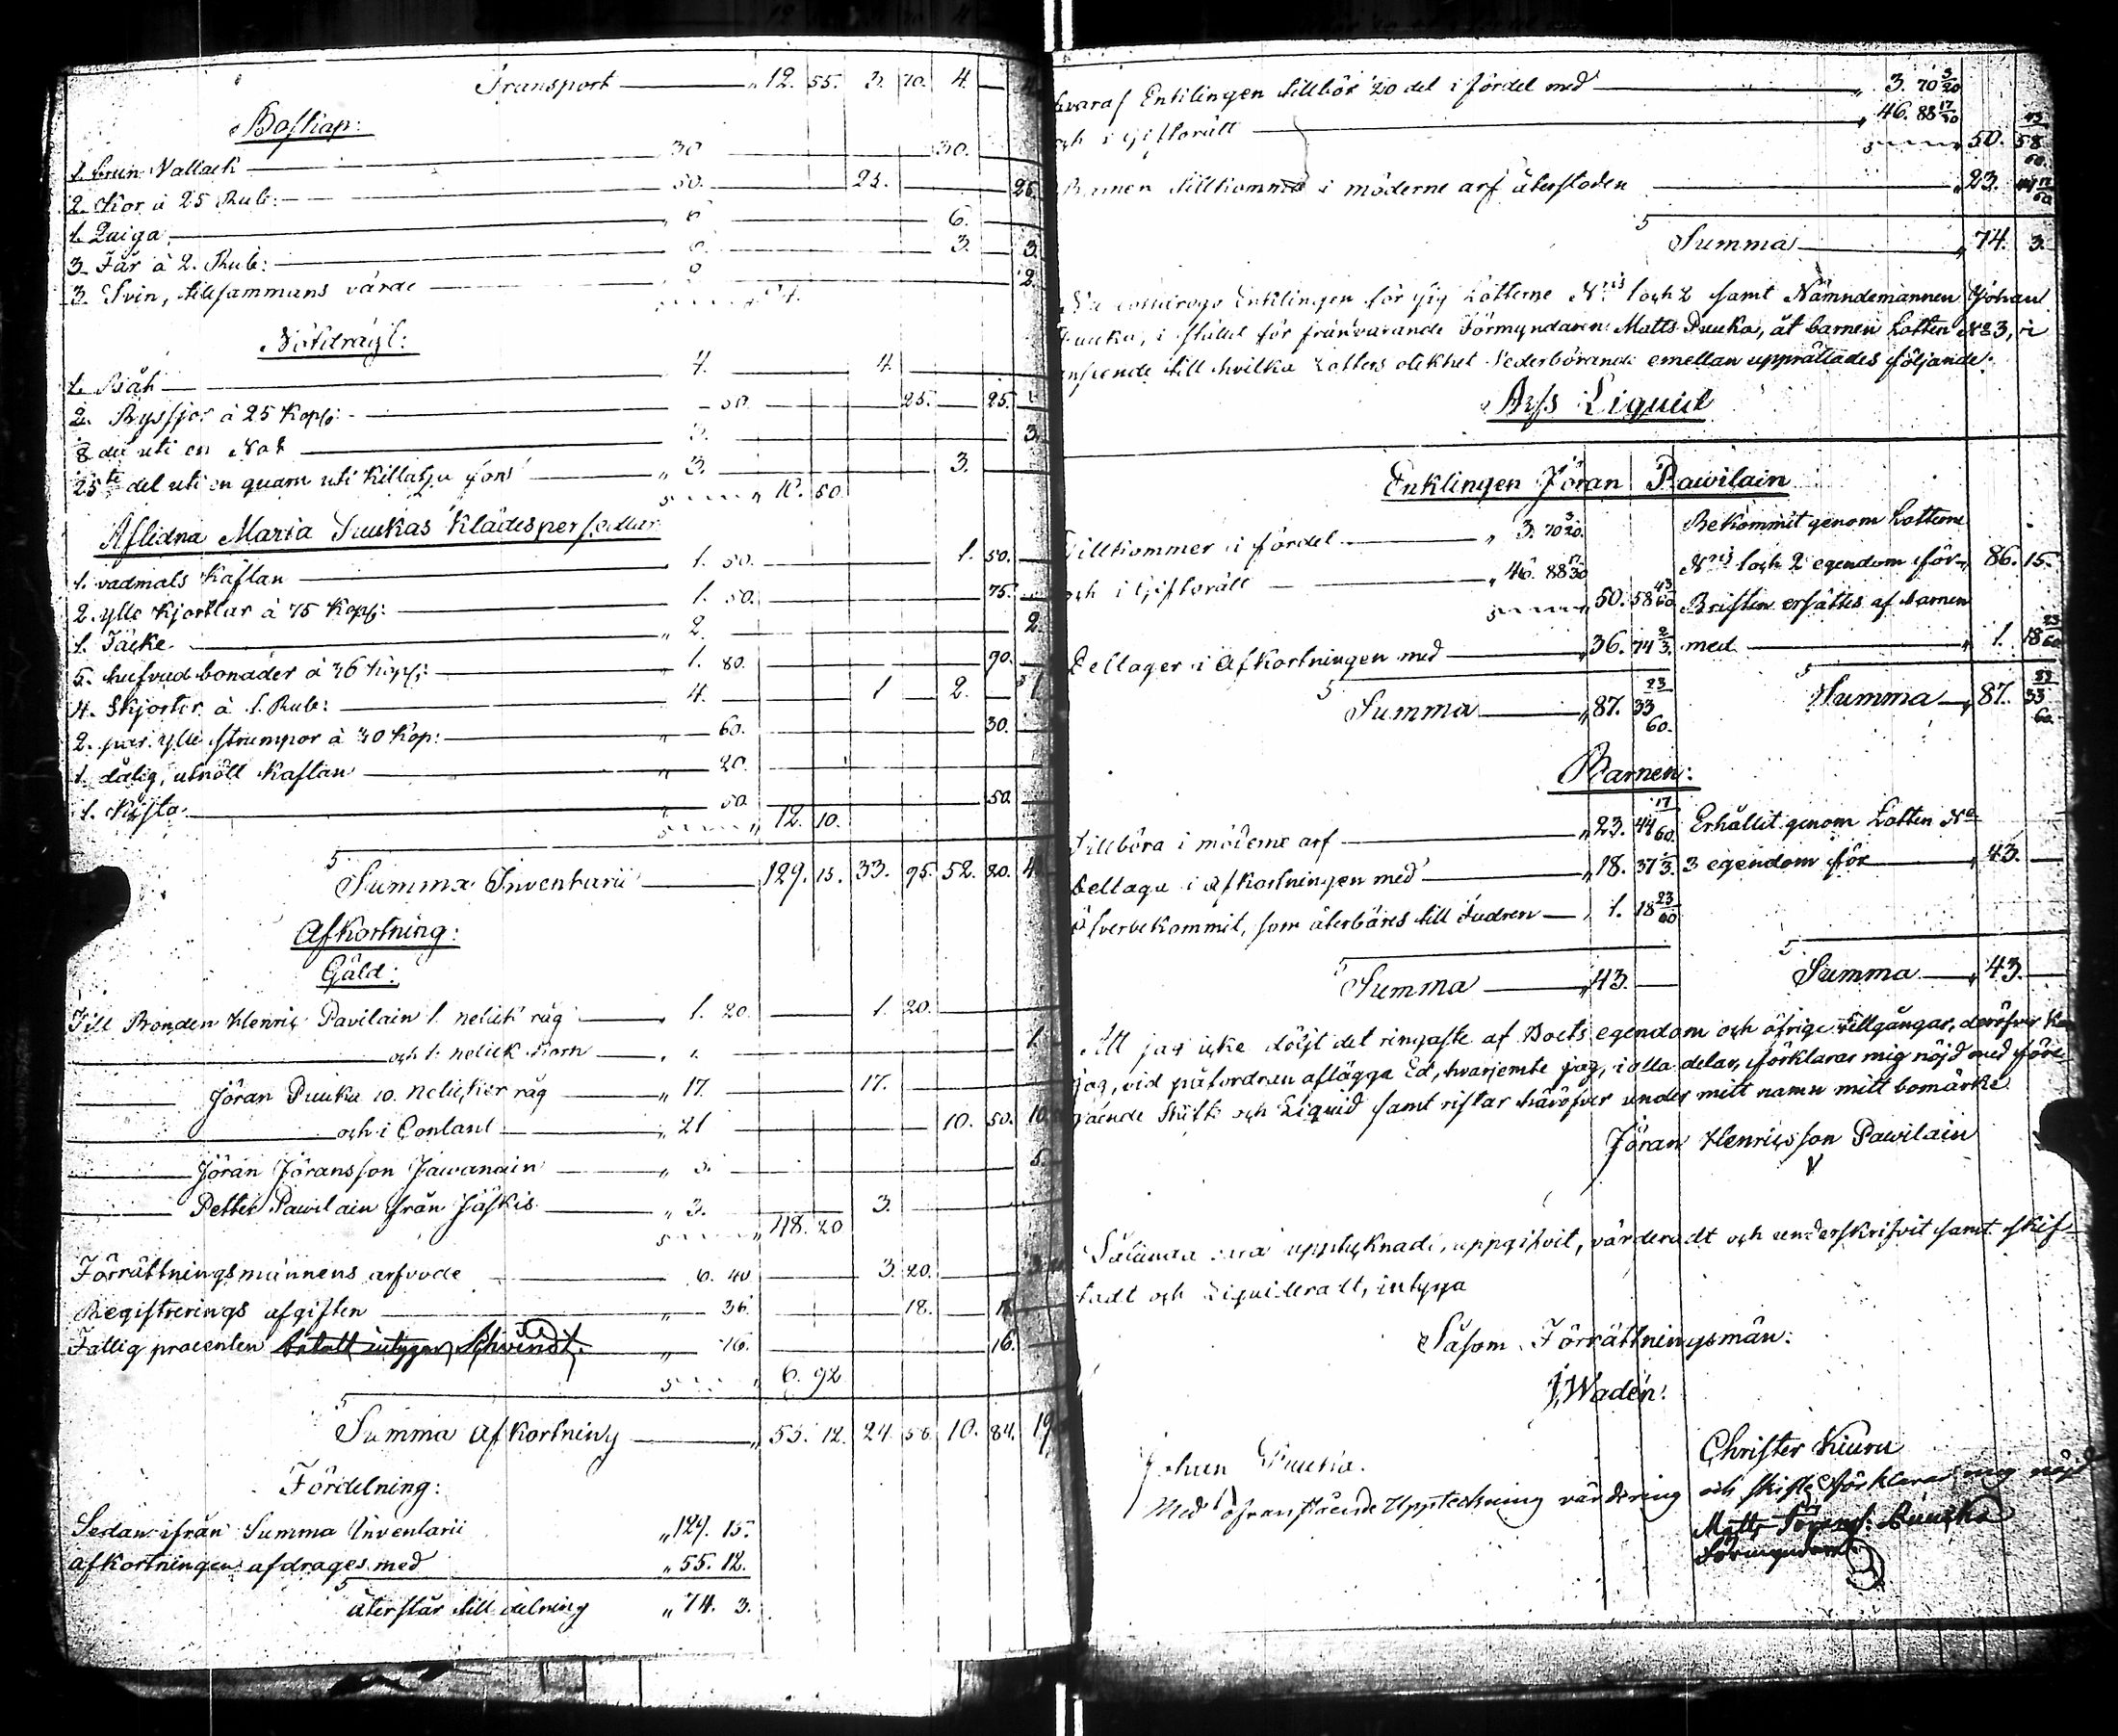 Transport " 12. 55. 3. 70. 4.
Boskap:
1. brun Vallack 30 30.
2. Kor à 25 Rub: 50. 25. 25.
1. Quiga " 6 6.
3. Får à 2. Rub: 6. 3. 3.
3. Svin, tillsammans värde 2.
1. Båt 4. 4.
2. Ryssjor à 25 Kop: 50. 25. 25.
8 del uti en Not 3. 3.
25te del uti en quarn uti Killatju fors " 3. 3.
" 10. 50
Aflidna Maria Puukas Klädespersedlar
1. vadmals Kaftan 1. 50. 1. 50.
2. ylle Kjortlar à 75 Kop: 1. 50. 75.
1. Täcke " 2. 2.
5. hufvudbonader à 36 Kop: 1. 80. 90.
4. Skjortor à 1. Rub: 4. 1 2. 1
2. par ylle strumpor à 30 Kop: " 60. 30.
1. dålig, utnött Kaftan " 20.
1. Kista " 50. 50.
" 12. 10.
Summa Inventarii 129. 15. 33. 95. 52. 20.
Afkortning:
Gäld:
Till Bonden Henric Pavilain 1. nelick råg " 1. 20. 1. 20.
och 1. nelick Korn 1.
Jöran Puuka 10. nelicker råg " 17. 17.
och i Contant " 21 10. 50.
Jöran Jöransson Jawanain " 5. 5.
Petter Pawilain från Jäskis " 3. 3.
" 48. 20
Förrättningsmännens arfvode 6. 40 3. 20.
Registrerings afgiften " 36. 18. 18
Fattig procenten betalt intygar Schvindt. " 16. 16.
" 6. 92
Summa afkortning " 55. 12. 24. 58 10. 84. 19
Fördelning:
Sedan ifrån Summa Inventarii " 129. 15.
afkortningen afdrages med " 55. 12.
återstår till delning " 74. 3.
hvaraf Enklingen tillhör 20 del i fördel med " 3. 70 3/20
och i Giftorätt " 46. 88 17/30
" 50. 58 43/60.
Barnen tillkomma i möderne arf återstoden " 23. 44 17/60
Summa " 74. 3.
Enklingen för sig Lotterne Nris 1 och 2 samt Nämndemannen Johan
Puuka, i stället för frånvarande Förmyndaren Matts Puuka, åt barnen Lotten No 3, i
anseende till hvilka Lotters olikhet Vederbörande emellan upprättades följande:
Arfs Liquid
Enklingen Jöran Pawilain
Tillkommer i fördel " 3. 70 3/20. Bekommit genom Lotterne
och i Giftorätt " 46. 88 17/30 Nris 1 och 2 egendom för " 86. 15.
" 50. 58 43/60 Bristen ersättes af barnen
Deltager i Afkortningen med " 36. 74 2/3. med " 1. 18 23/60
Summa " 87. 33 23/60. Summa " 87. 33 23/60.
Barnen:
Tillhöra i möderne arf " 23. 44 17/60 Erhållit genom Lotten No
Deltaga i afkortningen med " 18. 37 1/3. 3 egendom för " 43.
Öfverbekommit, som återbäres till Fadren " 1. 18 23/60
Summa " 43. Summa " 43.
Att jag icke döljt det ringaste af Boets egendom och öfrige tillgångar, deröfver kan
jag, vid påfordran aflägga Ed, hvarjemte jag, i alla delar, förklarar mig nöjd med före-
gående Skifte och Liquid samt ristar häröfver under mitt namn mitt bomärke.
Jöran Henricsson Pawilain
Sålunda vara upptecknadt, uppgifvit, värderadt och underskrifvit samt skif-
tadt och Liquideradt, intyga
Såsom Förrättningsmän:
J. Wadén.
Johan Puuka. Christer Kiuru
Med ofvanstående Uppteckning värdering och skifte förklarar mig nöjd
Matts Puuka
Förmyndare